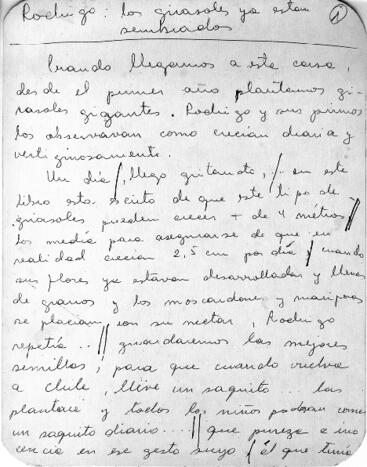 Rodrigo: los girasoles ya estan
sembrados
1
Cuando llegamos a esta casa,
desde el primer año plantamos gi-
rasoles gigantes. Rodrigo y sus primos
los observavan como crecian diaria y
vertiginosamente.
Un día /, llego gritando, /.. en este
libro esta escrito de que este tipo de
girasoles pueden crecer + de 4 métros //
los media para asegurarse de que en
realidad crecian 2,5 cm por día / cuando
sus flores ya estavan desarrolladas y llenas
de granos y los moscardones y mariposas
se placian con su nectar, Rodrigo
repetía .. // guardaremos las mejores
semillas, para que cuando vuelva
a Chile, lleve un saquito ... las
plantare y todos los niños podran comer
un saquito diario ... // que pureza e ino
cencia en ese gesto suyo / el que tenia